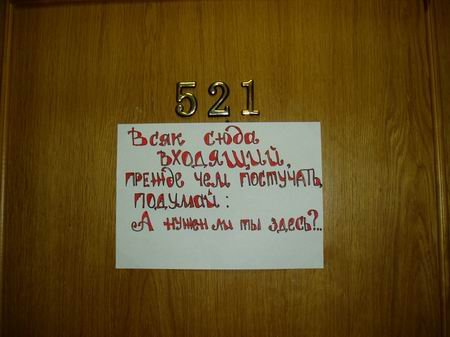 521
Всяк сюда
входящий,
прежде чем постучать,
подумай:
А нужен ли ты здесь?..